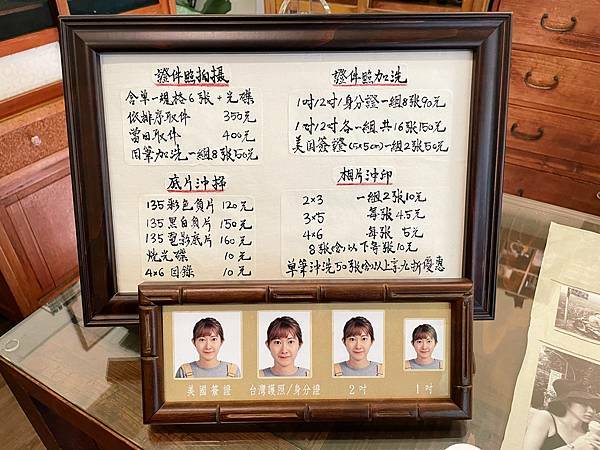 證件照拍攝
含單一規格6張+光碟
依排序取件 350元
當日取件 400元
同筆加洗一組8張50元
證件照加洗
1吋/2吋/身分證一組8張90元
1吋12吋各一組 共16張150元
美国簽證(5x5cm)一組2張50元
底片沖掃
135彩色負片 120元
135黑白負片 150元
135電影底片 160元
燒光碟 10元
4x6目錄 10元
相片沖印
2×3 一組2張10元
3×5 每張4.5元
4×6 每張5元
8張(含)以下每張10元
單筆沖洗50張(含)以上享九折優惠
美國簽證
台灣護照/身分證
2吋
1吋